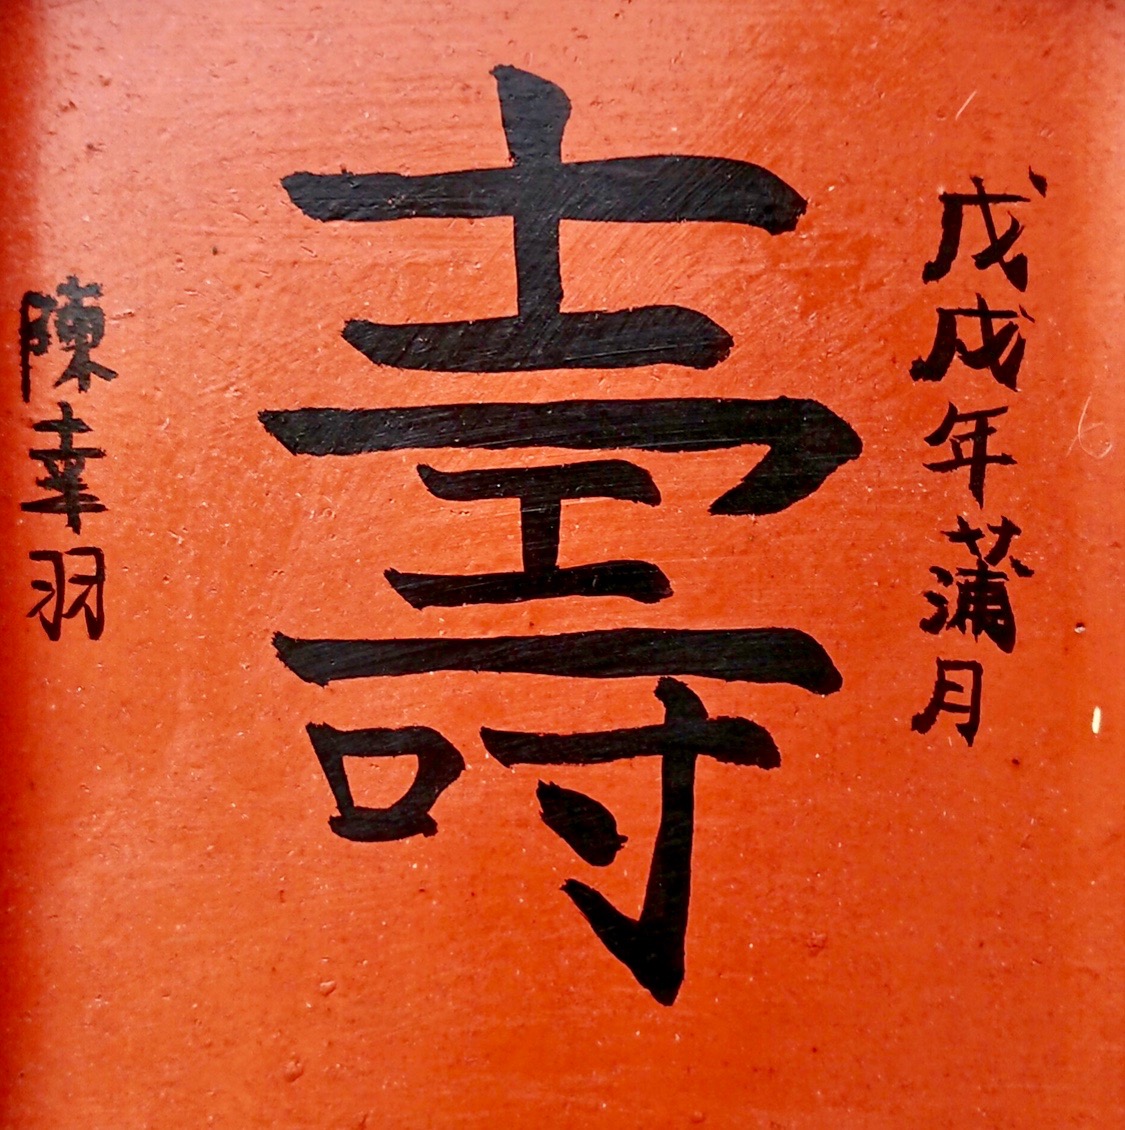 戊戌年蒲月
壽
陳幸羽